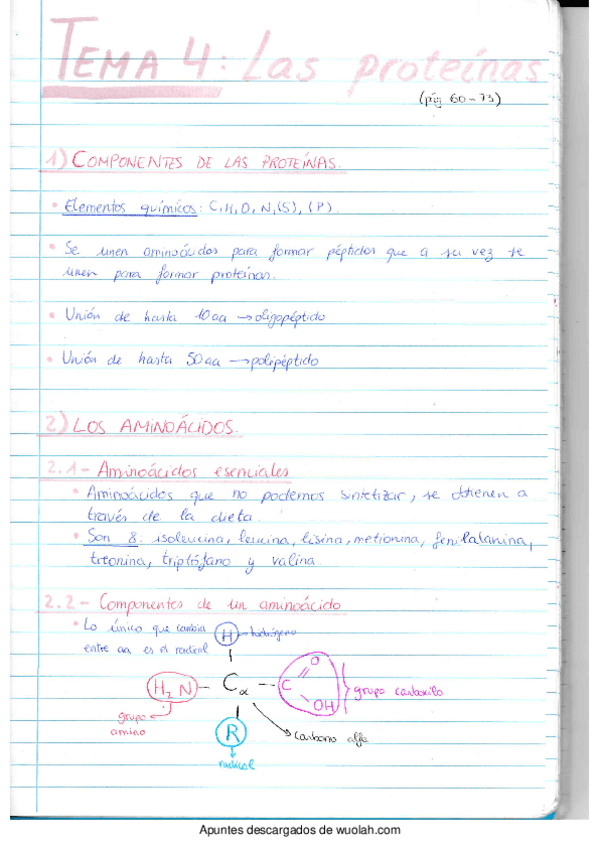 TEMA 4: Las proteínas
(pág 60-73)
1) COMPONENTES DE LAS PROTEÍNAS.
• Elementos químicos: C, H, O, N, (S), (P).
• Se unen aminoácidos para formar péptidos que a su vez se
unen para formar proteínas.
• Unión de hasta 10 aa → oligopéptido
• Unión de hasta 50 aa → polipéptido
2) LOS AMINOÁCIDOS.
2.1- Aminoácidos esenciales
• Aminoácidos que no podemos sintetizar, se obtienen a
través de la dieta.
• Son 8: isoleucina, leucina, lisina, metionina, fenilalanina,
treonina, triptófano y valina.
2.2- Componentes de un aminoácido
• Lo único que cambia
entre aa es el radical
H - hidrógeno
H₂N - Cα - C
O
OH
grupo carboxilo
grupo
amino
R
carbono alfa
radical
Apuntes descargados de wuolah.com